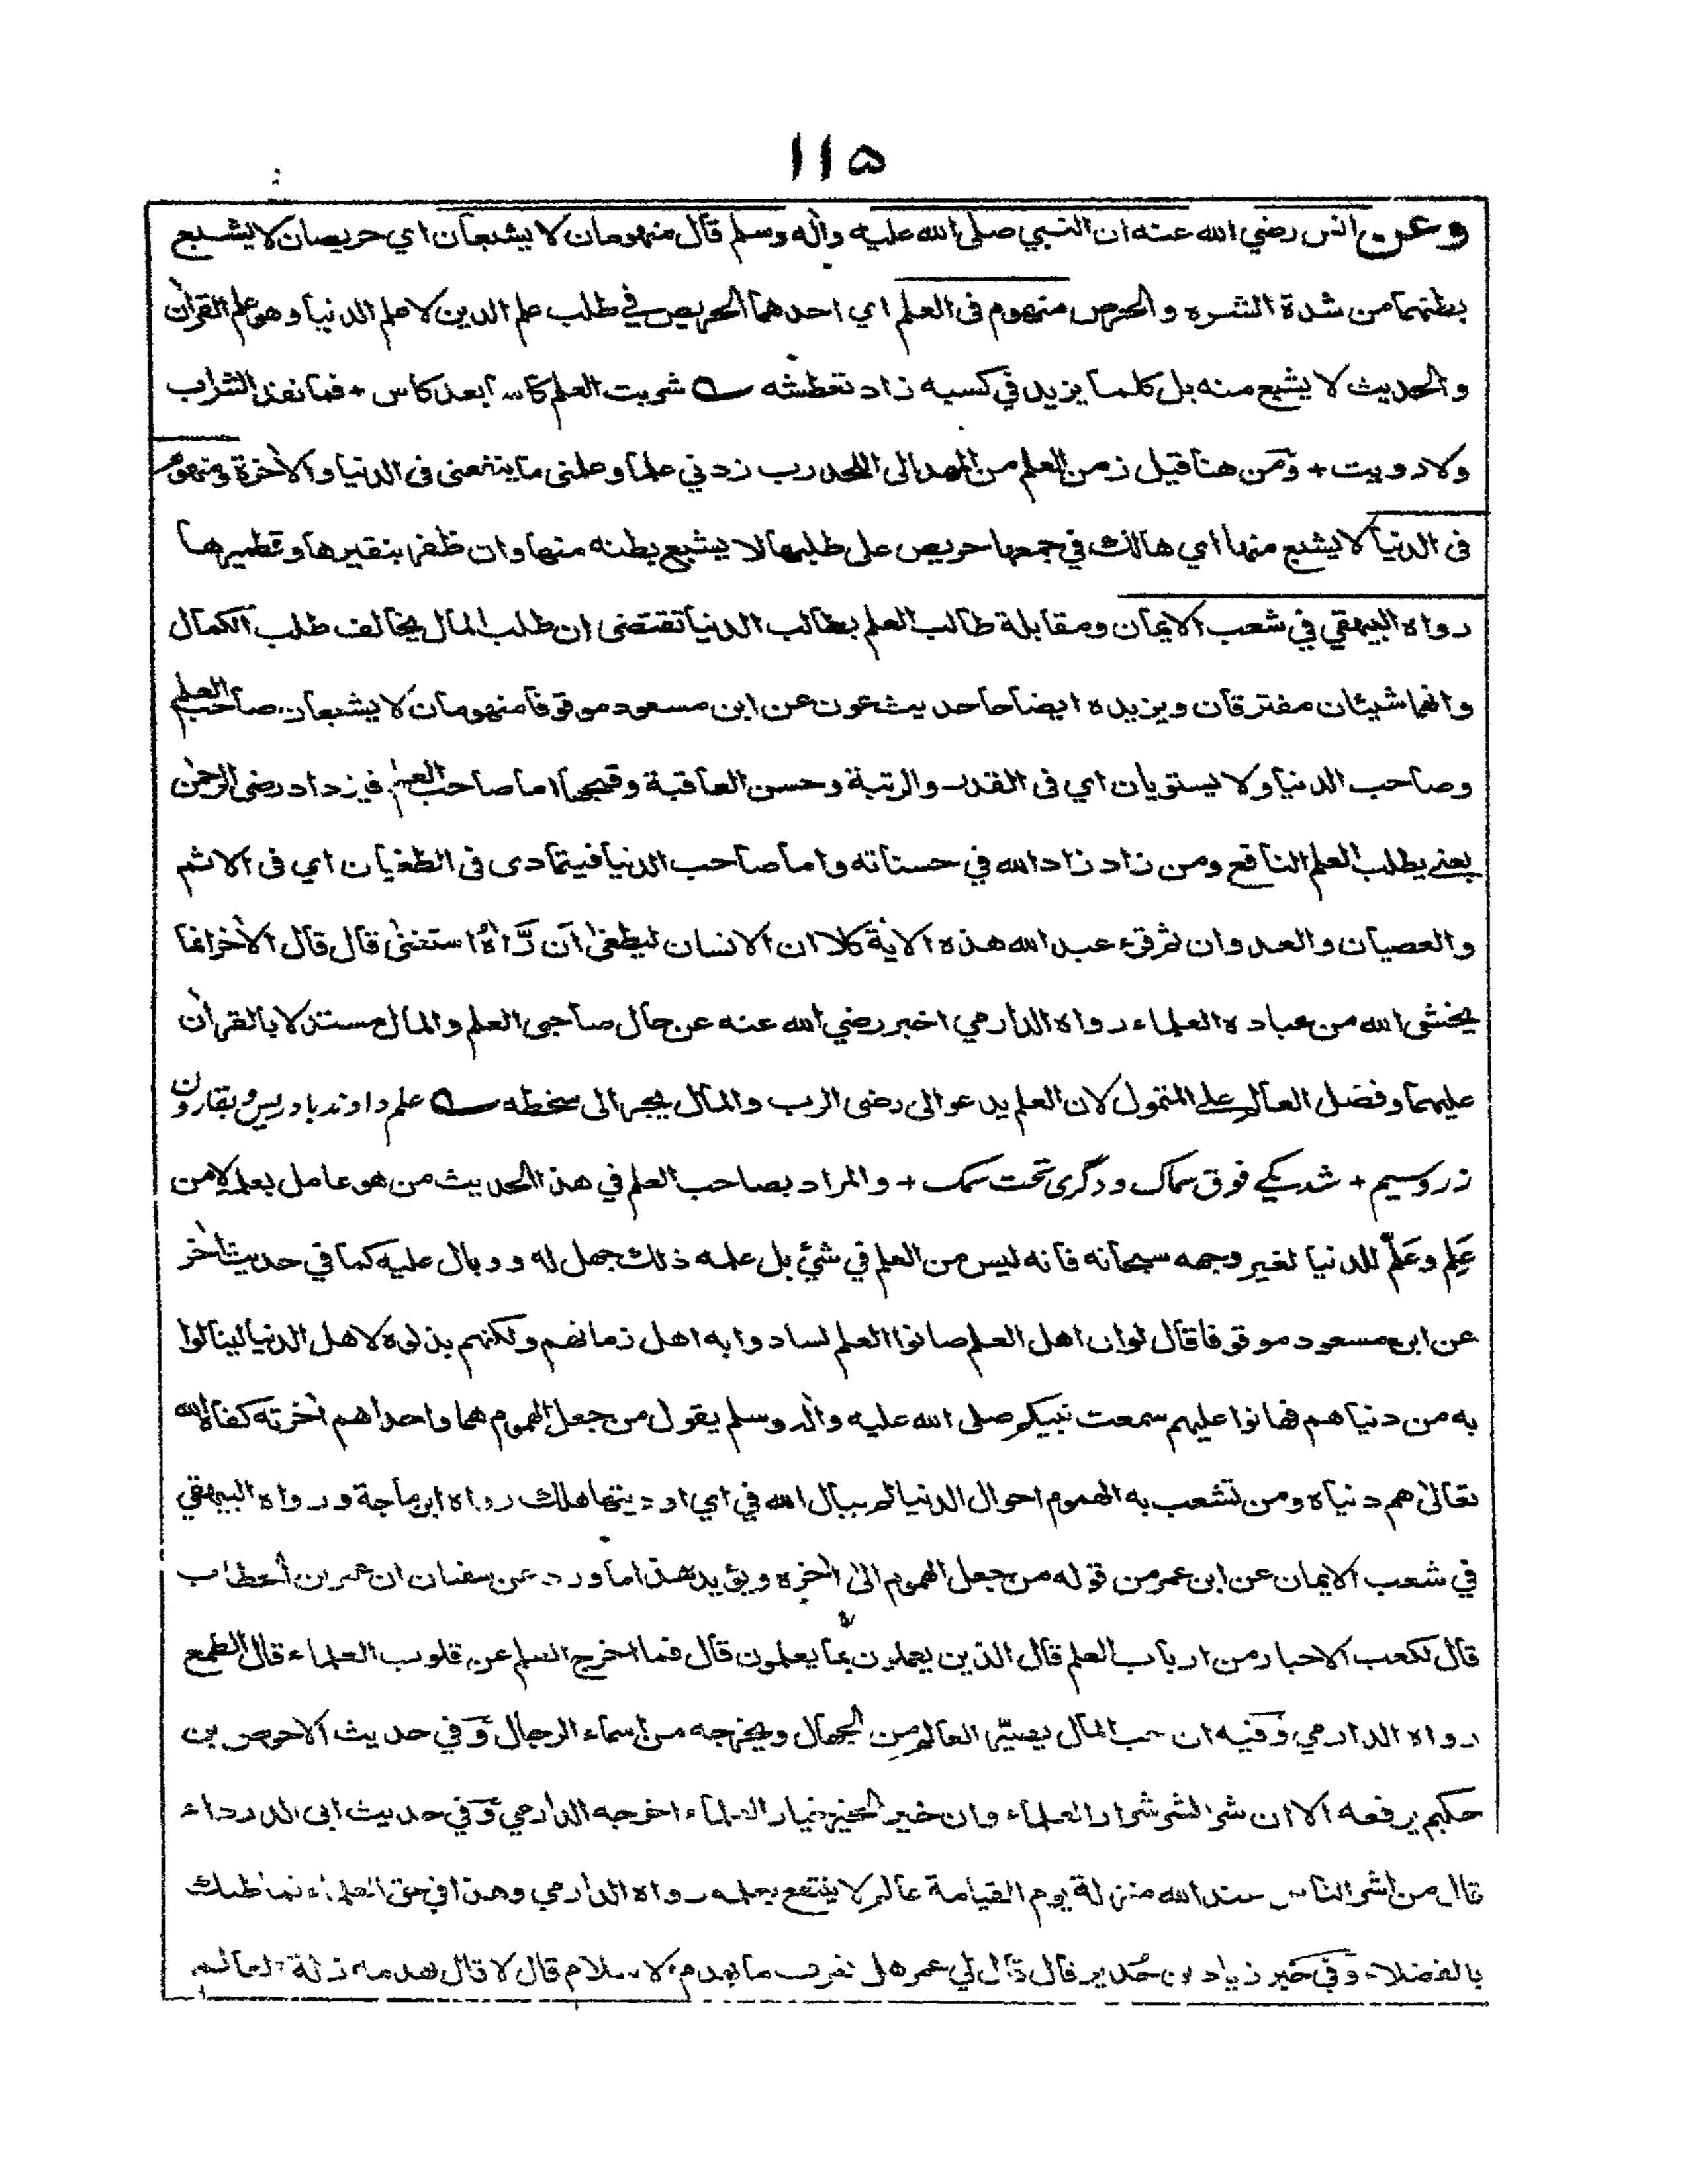 ١١٥
وعن انس رضي الله عنه ان النبي صلى الله عليه واله وسلم قال منهومان لا يشبعان اي حريصان لا يشبع
بطنهما من شدة الشره والحرص منهوم فى العلم اي احدهما الحريص في طلب علم الدين لا علم الدنيا وهو علم القرآن
والحديث لا يشبع منه بل كلما يزيد في كسبه زاد تعطشه شربت العلم كاسا بعد كاس + فما نفذ الشراب
ولا رويت + ومن هنا قيل زمن العلم من المهد الى اللحد رب زدني علما وعلمنى ما ينفعنى فى الدنيا والآخرة ومنهوم
فى الدنيا لا يشبع منها اي هالك في جمعها حريص على طلبها لا يشبع بطنه منها وان ظفر بنقيرها وقطميرها
رواه البيهقي في شعب الايمان ومقابلة طالب العلم بطالب الدنيا تقتضى ان طلب المال يخالف طلب الكمال
وانهما شيئان مفترقان ويزيده ايضاحا حديث عون عن ابن مسعود موقوفا منهومان لا يشبعان صاحب العلم
وصاحب الدنيا ولا يستويان اي فى القدر والرتبة وحسن العاقبة وقبحها اما صاحب العلم فيزداد رضى الرحمن
يعني بطلب العلم النافع ومن زاد زاد الله في حسناته واما صاحب الدنيا فيتمادى فى الطغيان اي فى الاثم
والعصيان والعدوان ثم قرء عبد الله هذه الاية كلا ان الانسان ليطغى ان رّاه استغنى قال قال الآخر انما
يخشى الله من عباده العلماء رواه الدارمي اخبر رضي الله عنه عن حال صاحبى العلم والمال مستدلا بالقرآن
عليهما وفضل العالم على المتمول لان العلم يدعو الى رضى الرب والمال يجر الى سخطه علم داوند بادريس وبقارون
زر وسيم + شد يكے فوق سماك ودگرى تحت سمك + والمراد بصاحب العلم في هذا الحديث من هو عامل بعلمه لا من
عَلِم وعَلّم للدنيا لغير وجهه سبحانه فانه ليس من العلم في شئ بل علمه ذلك جهل له ووبال عليه كما في حديث اخر
عن ابن مسعود موقوفا قال لو ان اهل العلم صانوا العلم لسادوا به اهل زمانهم ولكنهم بذلوه لاهل الدنيا لينالوا
به من دنياهم فهانوا عليهم سمعت نبيكم صلى الله عليه واله وسلم يقول من جعل الهموم هما واحدا هم آخرته كفاه الله
تعالى هم دنياه ومن تشعب به الهموم احوال الدنيا لم يبال الله في اي اوديتها هلك رواه ابن ماجة ورواه البيهقي
في شعب الايمان عن ابن عمر من قوله من جعل الهموم الى اخره ويؤيد هذا ما ورد عن سفيان ان عمر بن الخطاب
قال لكعب الاحبار من ارباب العلم قال الذين يعملون بما يعلمون قال فما اخرج العلم عن قلوب العلماء قال الطمع
رواه الدارمي وفيه ان حب المال يصيّر العالم من الجهال ويخرجه من اسماء الرجال وفي حديث الاحوص بن
حكيم يرفعه الا ان شر الشر شرار العلماء وان خير الخير خيار العلماء اخرجه الدارمي وفي حديث ابى الدرداء
قال من اشر الناس عند الله منزلة يوم القيامة عالم لا ينتفع بعلمه رواه الدارمي وهذا في حق العلماء فما ظنك
بالفضلاء وفي خبر زياد بن حُدير قال قال لي عمر هل تعرف ما يهدم الاسلام قال لا قال يهدمه زلة العالم